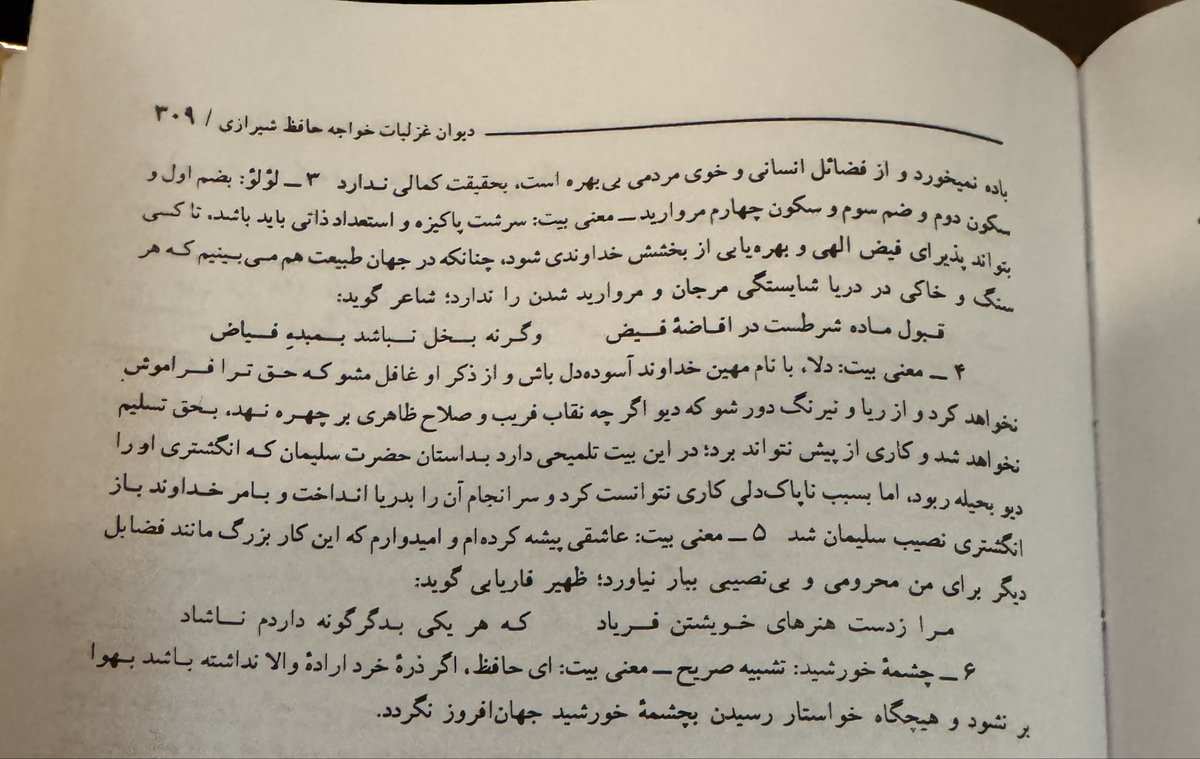 دیوان غزلیات خواجه حافظ شیرازی / ۳۰۹
باده نمیخورد و از فضائل انسانی و خوی مردمی بی‌بهره است، بحقیقت کمالی ندارد ۳ ـ لؤلؤ: بضم اول و
سکون دوم و ضم سوم و سکون چهارم مروارید ـ معنی بیت: سرشت پاکیزه و استعداد ذاتی باید باشد. تا کسی
بتواند پذیرای فیض الهی و بهره‌یابی از بخشش خداوندی شود، چنانکه در جهان طبیعت هم می‌بینیم که هر
سنگ و خاکی در دریا شایستگی مرجان و مروارید شدن را ندارد؛ شاعر گوید:
قبول ماده شرطست در افاضهٔ فیض وگرنه بخل نباشد بمبدءِ فیاض
۴ ـ معنی بیت: دلا، با نام مهین خداوند آسوده‌دل باش و از ذکر او غافل مشو که حق ترا فراموش
نخواهد کرد و از ریا و نیرنگ دور شو که دیو اگر چه نقاب فریب و صلاح ظاهری بر چهره نهد، بحق تسلیم
نخواهد شد و کاری از پیش نتواند برد؛ در این بیت تلمیحی دارد بداستان حضرت سلیمان که انگشتری او را
دیو بحیله ربود، اما بسبب ناپاک‌دلی کاری نتوانست کرد و سرانجام آن را بدریا انداخت و بامر خداوند باز
انگشتری نصیب سلیمان شد ۵ ـ معنی بیت: عاشقی پیشه کرده‌ام و امیدوارم که این کار بزرگ مانند فضایل
دیگر برای من محرومی و بی‌نصیبی ببار نیاورد؛ ظهیر فاریابی گوید:
مرا زدست هنرهای خویشتن فریاد که هر یکی بدگرگونه داردم ناشاد
۶ ـ چشمهٔ خورشید: تشبیه صریح ـ معنی بیت: ای حافظ، اگر ذرهٔ خرد ارادهٔ والا نداشته باشد بهوا
بر نشود و هیچگاه خواستار رسیدن بچشمهٔ خورشید جهان‌افروز نگردد.